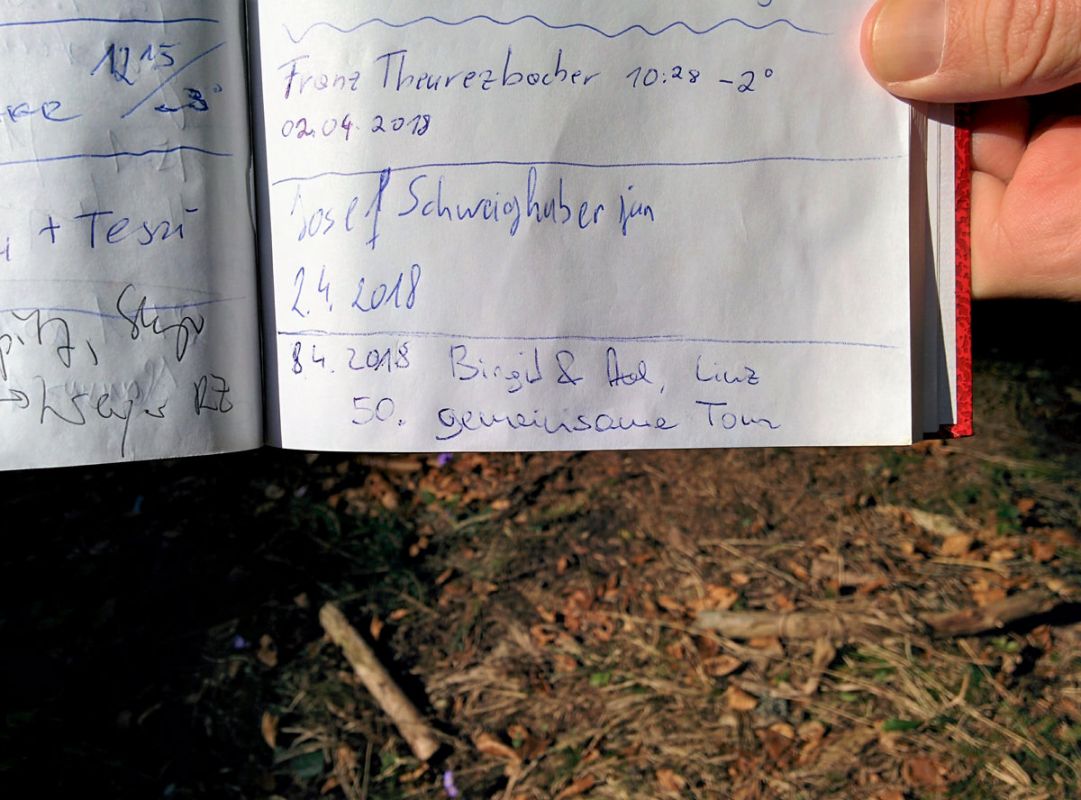 12 15
-3°
+ Teszi
Franz Theurezbacher 10:28 -2°
02.04.2018
Josef Schweighuber jun
2.4.2018
8.4.2018 Birgit & Linz
50. gemeinsame Tour